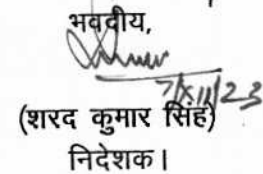 भवदीय,
7/XII/23
(शरद कुमार सिंह)
निदेशक।